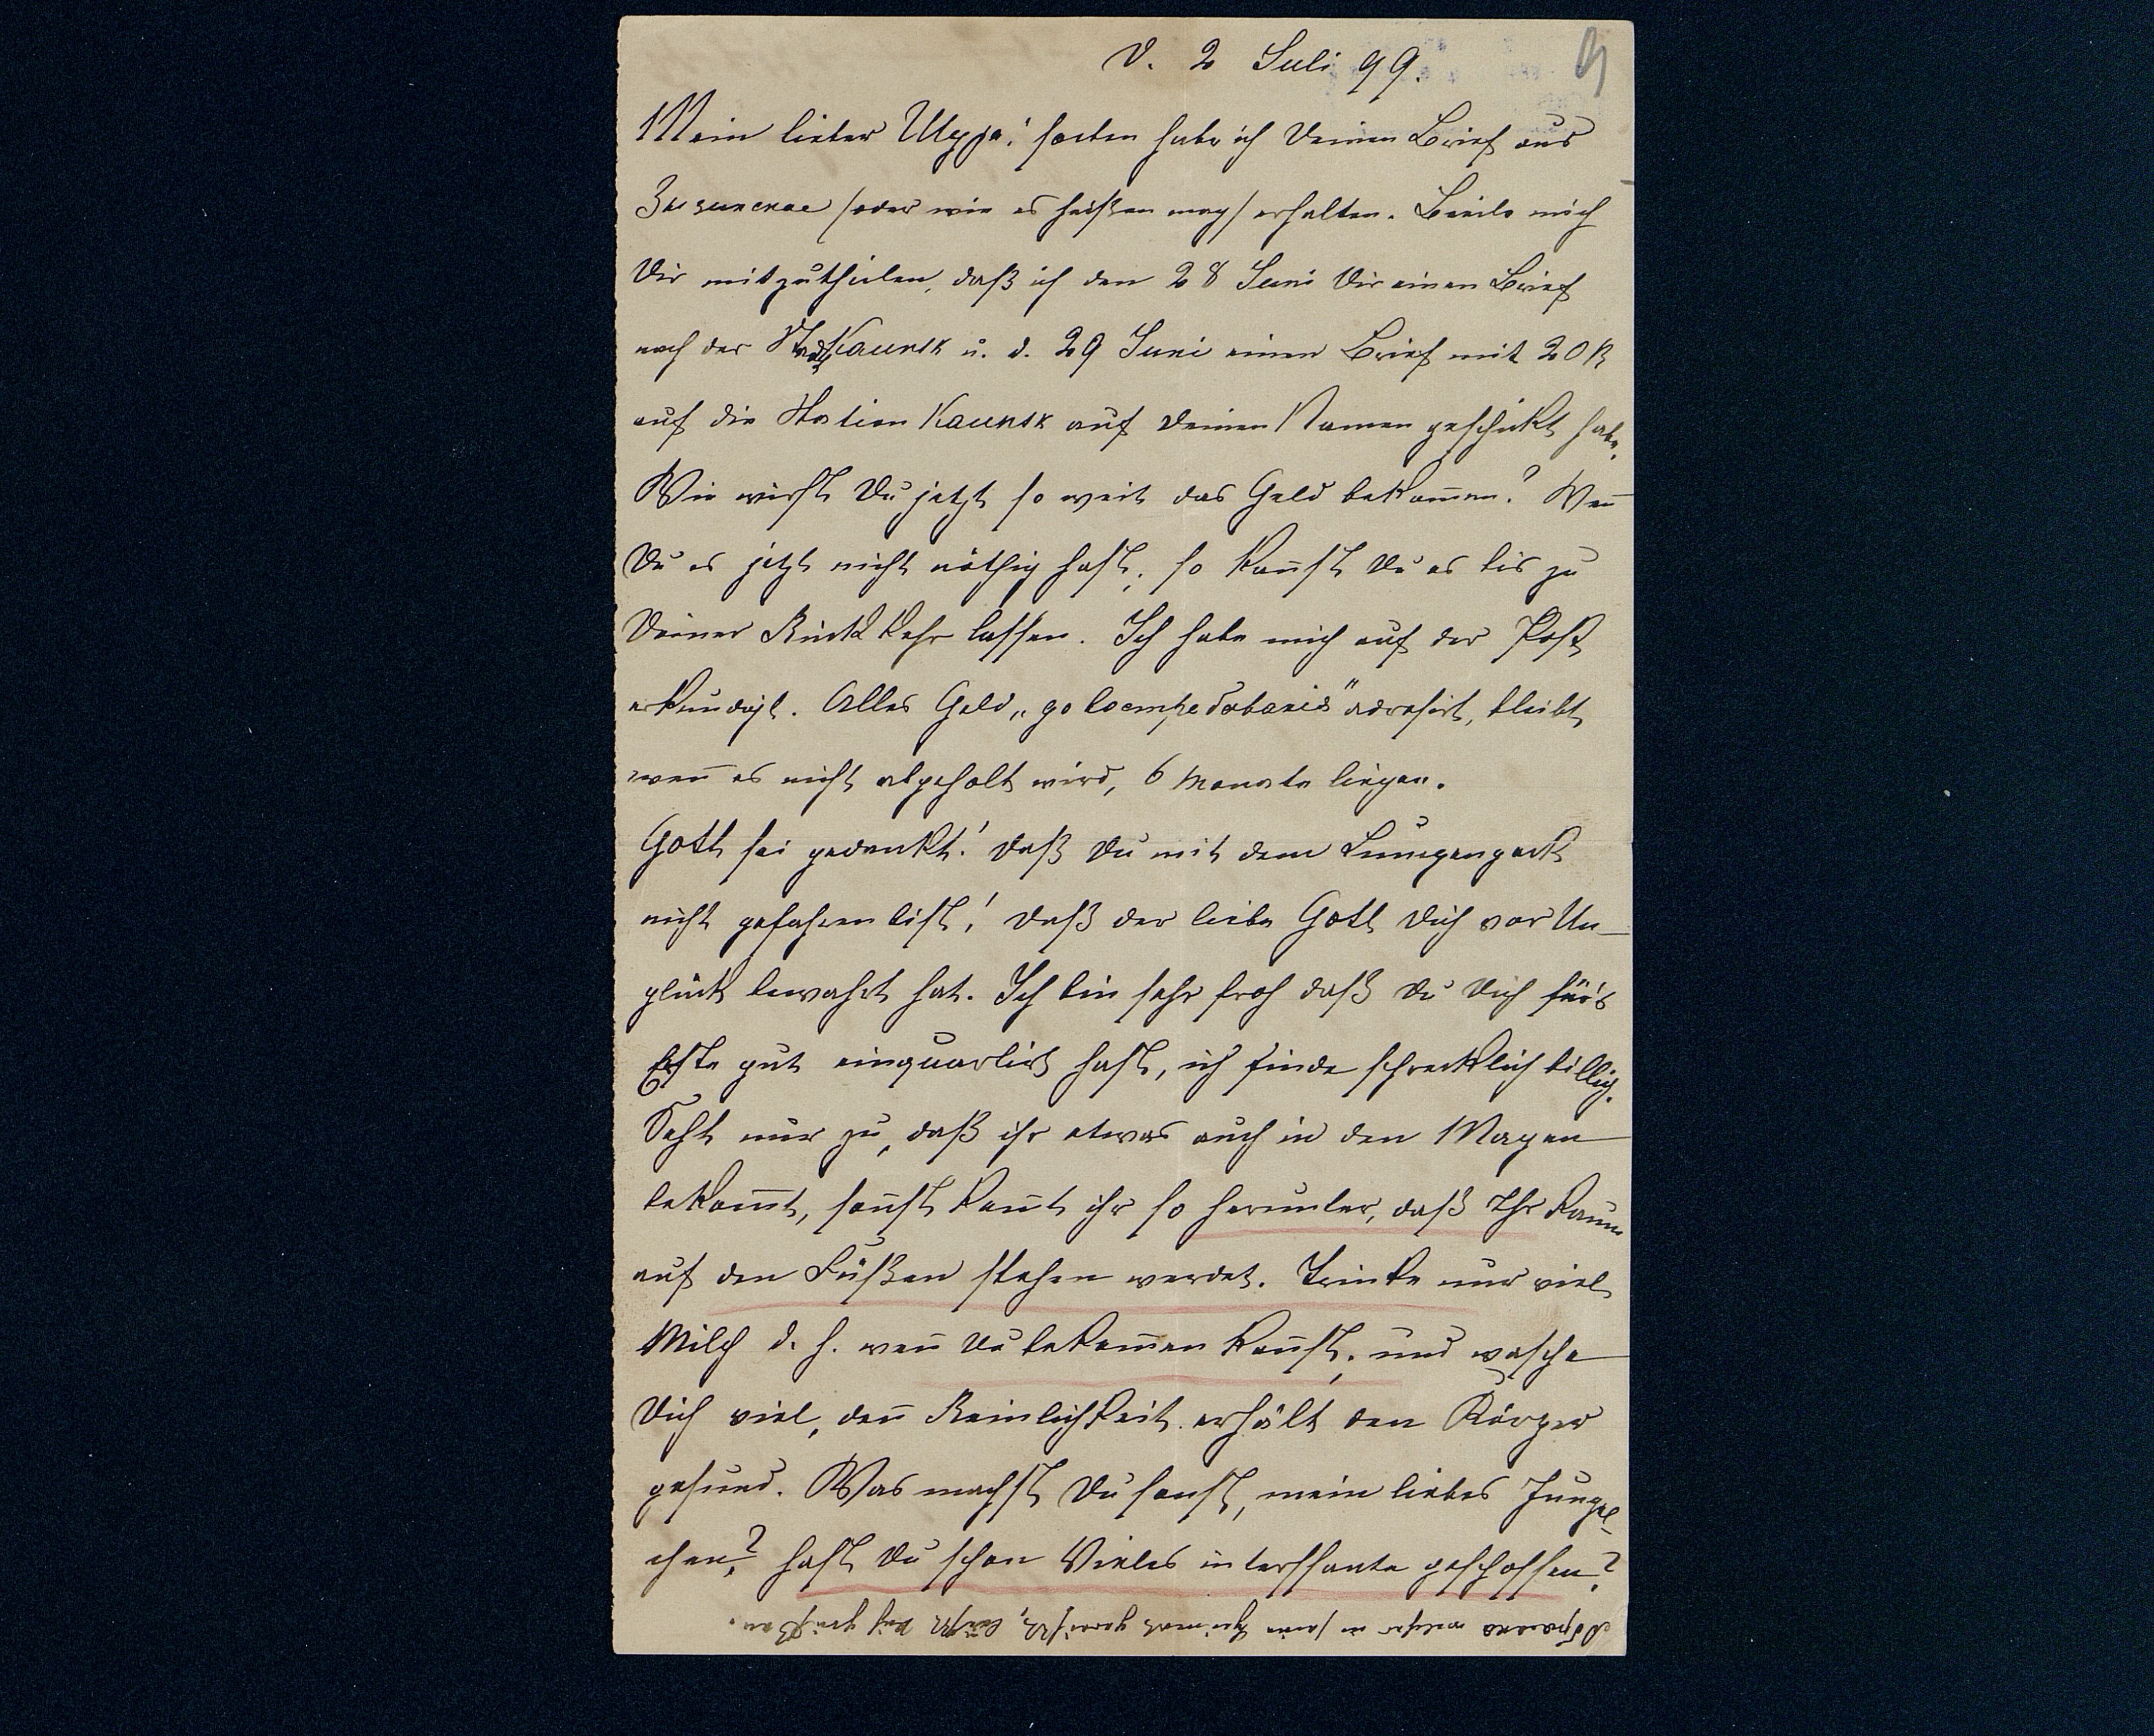 d. 2 Juli 99.
Mein lieber soeben habe ich Deinen Brief aus
(oder wie es heißen mag) erhalten. Beeile mich
Dir mitzutheilen, daß ich den 28 Juni Dir einen Brief
nach der Stadt Kaunsk u. d. 29 Juni einen Brief mit 20 R
auf die Station Kaunsk auf Deinen Namen geschickt habe.
Wie wirst Du jetzt so weit das Geld bekom̄en? Wen̄
Du es jetzt nicht nöthig hast, so kan̄st Du es bis zu
Deiner Rückkehr lassen. Ich habe mich auf der Post
erkundigt. Alles Geld „до востребованiя" adresirt, bleibt
wen̄ es nicht abgeholt wird, 6 Monate liegen.
Gott sei gedankt! daß Du mit dem
nicht gefahren bist! daß der liebe Gott Dich vor Un-
glück bewahrt hat. Ich bin sehr froh daß Du Dich für's
Erste gut einquartirt hast, ich finde schrecklich billig.
Seht nur zu, daß ihr etwas auch in den Magen
bekom̄t, son̄st kom̄t ihr so herunter, daß Ihr kaum
auf den Füßen stehen werdet. Trinke nur viel
Milch d. h. wen̄ Du bekom̄en kan̄st, und wasche
Dich viel, den̄ Reinlichkeit erhält den Körper
gesund. Was machst Du sonst, mein liebes Jungel-
chen? hast Du schon Vieles interssante geschossen?
welcher in seine Heimath gereist ist, läßt Dich grüßen.